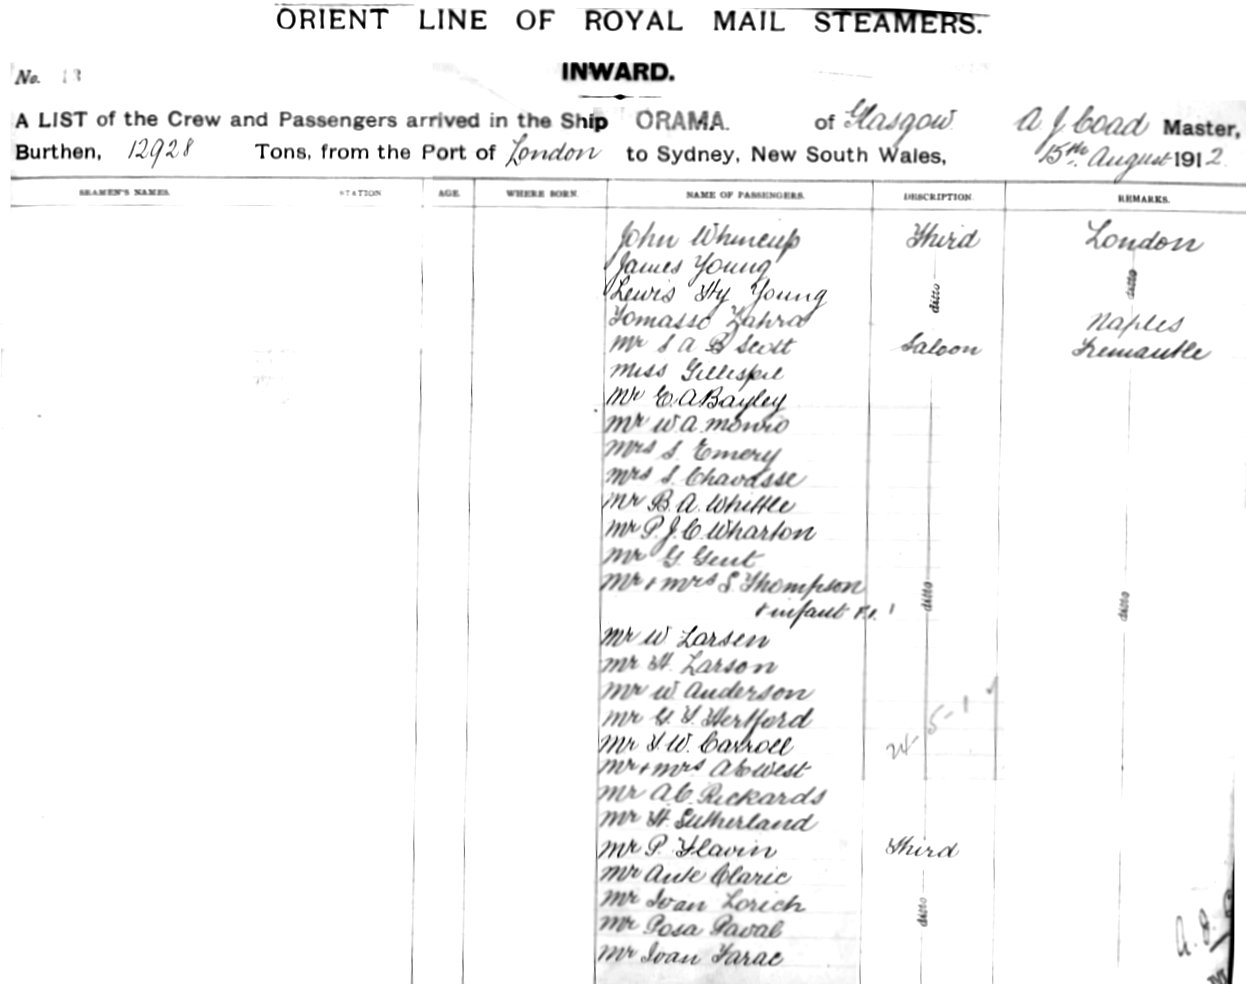 ORIENT LINE OF ROYAL MAIL STEAMERS.
No. 13 INWARD.
A LIST of the Crew and Passengers arrived in the Ship ORAMA. of Glasgow A J Coad Master,
Burthen, 12928 Tons, from the Port of London to Sydney, New South Wales, 15th August 1912.
SEAMEN'S NAMES. STATION AGE. WHERE BORN. NAME OF PASSENGERS. DESCRIPTION. REMARKS.
John Whineup Third London
James Young ditto ditto
Lewis Hy Young
Tomasso Zahra Naples
Mr S A B Scott Saloon Fremantle
Miss Gillespie
Mr E. A Bayley
Mr W. A. Monro
Mrs S. Emery
Mrs S. Chavasse
Mr B. A. Whittle
Mr P. J. C. Wharton
Mr G. Gent
Mr + Mrs S. Thompson ditto ditto
+ infant 1
Mr W Larsen
Mr H. Larson
Mr W Anderson
Mr G. Y. Hertford
Mr F. W. Carroll 24-5-1
Mr + Mrs A C West
Mr A. C. Rickards
Mr H. Sutherland
Mr P. Flavin Third
Mr Ante Claric
Mr Ivan Lorich ditto
Mr Posa Paval
Mr Ivan Farac